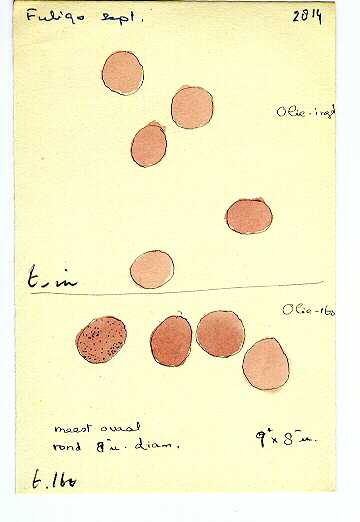 Fuligo sept. 2814
Olie-
Olie-160
meest ovaal
rond 8 u. diam. 9 x 8 u.
t. 160